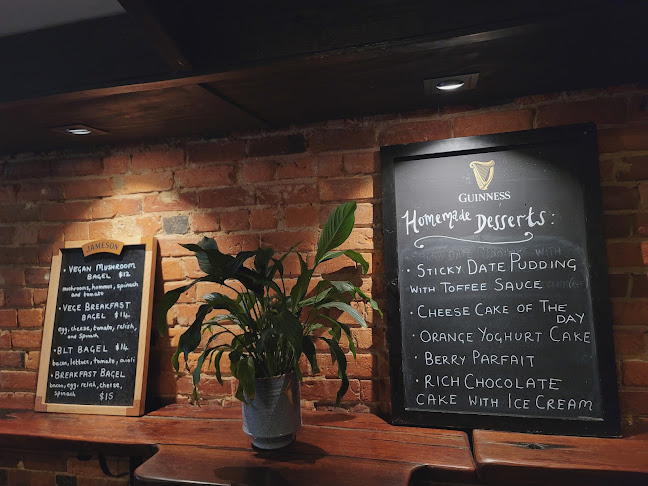 JAMESON
• VEGAN MUSHROOM
BAGEL $12
mushrooms, hommus, spinach
and tomato
• VEGE BREAKFAST
BAGEL $14
egg, cheese, tomato, relish,
and Spinach
• BLT BAGEL $14
bacon, lettuce, tomato, aioli
• BREAKFAST BAGEL
bacon, egg, relish, cheese,
spinach $15
GUINNESS
Homemade Desserts:
• STICKY DATE PUDDING
WITH TOFFEE SAUCE
• CHEESE CAKE OF THE
DAY
• ORANGE YOGHURT CAKE
• BERRY PARFAIT
• RICH CHOCOLATE
CAKE WITH ICE CREAM